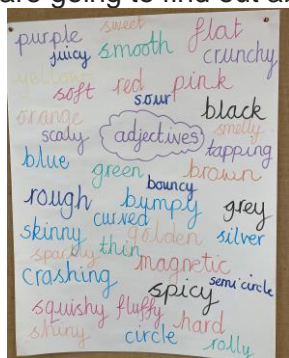 are going to find out a
purple sweet flat
juicy smooth crunchy
yellow
soft red pink
sour black
orange smelly
scaly adjectives tapping
blue green brown
bouncy
rough bumpy grey
curved
skinny golden silver
sparkly thin
magnetic
crashing semi circle
spicy
squishy fluffy hard
shiny circle rolly